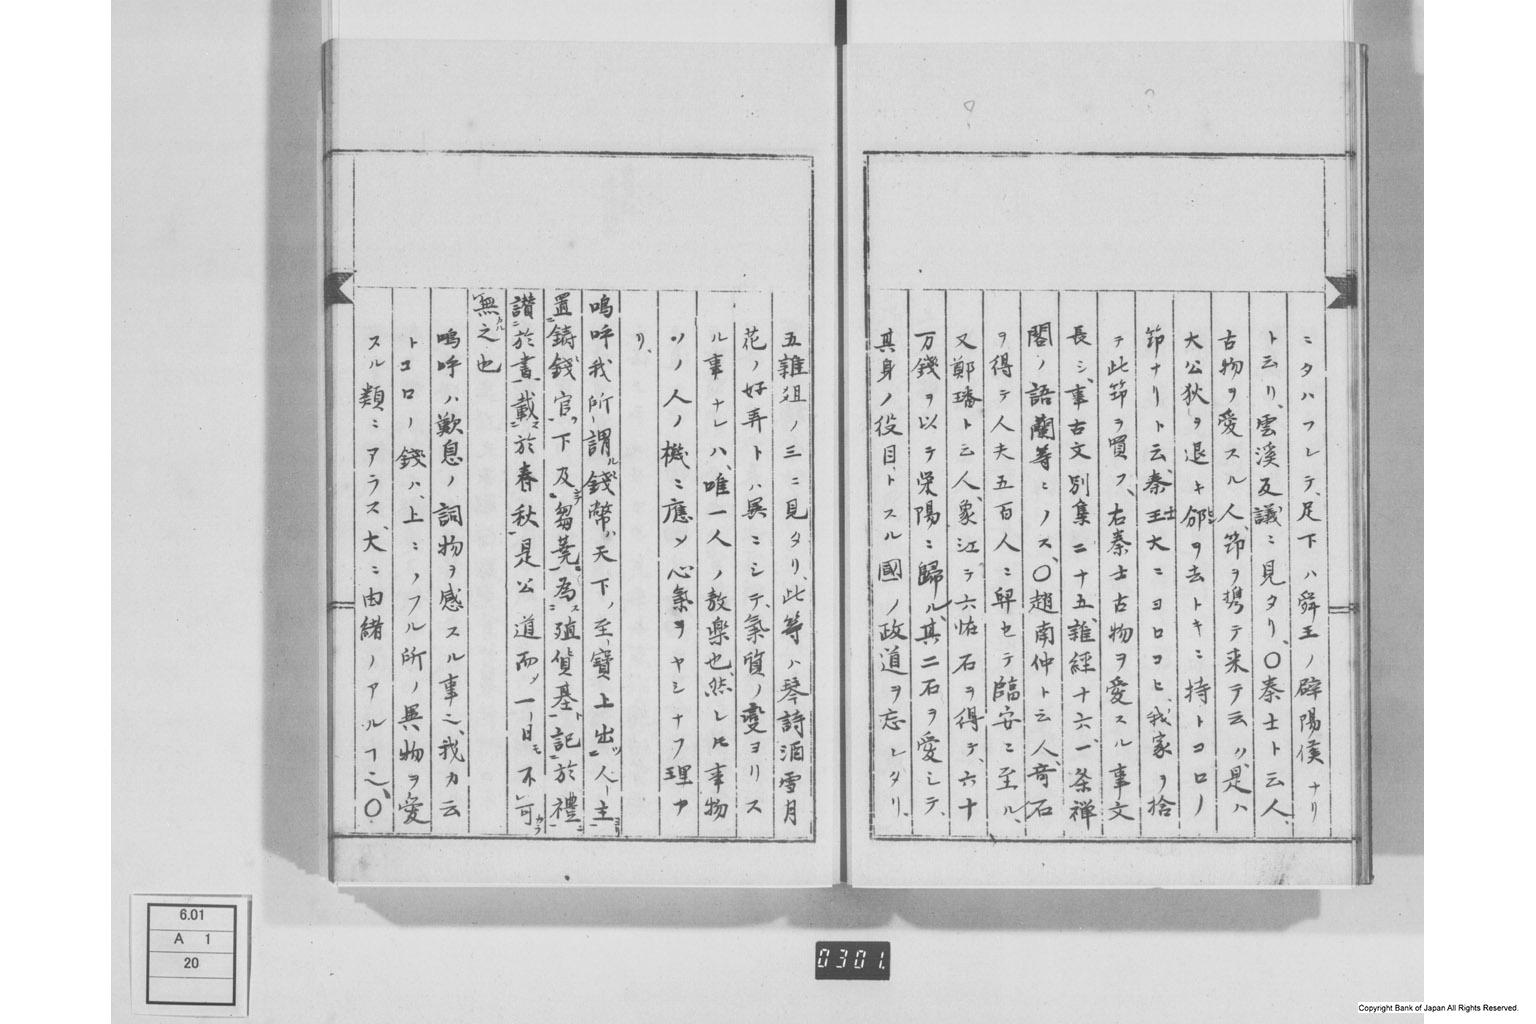 ニタハフレテ、足下ハ舜王ノ辟陽侯ナリ
ト云リ、雲渓友議ニ見タリ、〇秦士ト云人
古物ヲ愛スル人、節ヲ携テ来テ云ハ、是ハ
大公狄ヲ退キ邠ヲ去トキニ持トコロノ
節ナリト云、秦士大ニヨロコヒ、我家ヲ捨
テ此節ヲ買フ、右秦士古物ヲ愛スル事文
長シ、事古文別集二十五、誰經十六、一条禅
閤ノ語蘭等ニノス、〇趙南仲ト云人、奇石
ヲ得テ人夫五百人ニ舁セテ臨安ニ至ル、
又鄭璠ト云人、象江テ六怪石ヲ得テ、六十
万錢ヲ以テ栄陽ニ歸ル、其二石ヲ愛シテ、
其身ノ役目トスル國ノ政道ヲ忘レタリ、
五雜俎ノ三ニ見タリ、此等ハ琴詩酒雪月
花ノ好弄トハ異ニシテ、氣質ノ変ヨリス
ル事ナレハ、唯一人ノ敖樂也、然レ𪜈事物
ソノ人ノ機ニ應シ心氣ヲヤシナフ理ア
リ、
嗚呼我所謂ル錢幣ハ天下ノ至寶上出ツ人主ヨリ
置鋳錢官ヲ下及芻蕘為殖貨基記於禮
讃於書載於春秋是公道而メ一日モ不可カラ
無カル之也
嗚呼ハ歎息ノ詞、物ヲ感スル事也、我カ云
トコロノ錢ハ、上ニノフル所ノ異物ヲ愛
スル類ニアラス、大ニ由緒ノアルフ也、〇
6.01
A 1
20
0301.
Copyright Bank of Japan All Rights Reserved.